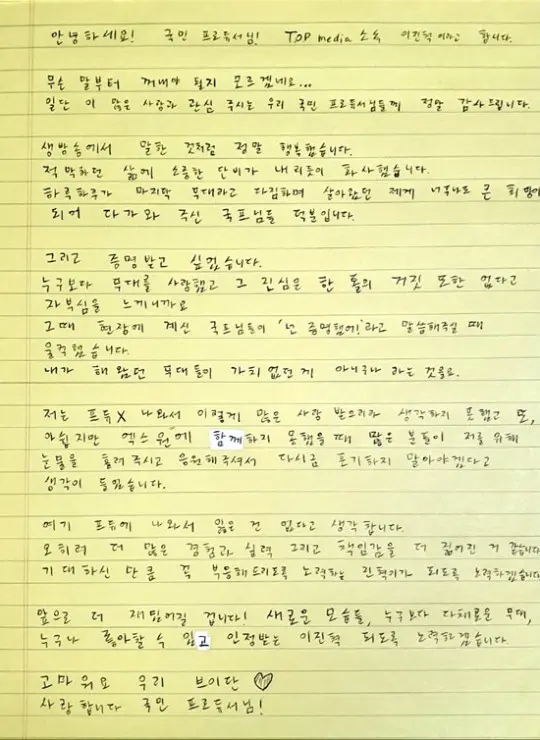 안녕하세요! 국민 프로듀서님! TOP media 소속 이진혁이라고 합니다.
무슨 말부터 꺼내야 될지 모르겠네요...
일단 이 많은 사랑과 관심 주시는 우리 국민 프로듀서님들께 정말 감사드립니다.
생방송에서 말한 것처럼 정말 행복했습니다.
적막하던 삶에 소중한 단비가 내리듯이 화사했습니다.
하루하루가 마지막 무대라고 다짐하며 살아왔던 제게 너무나도 큰 희망이
되어 다가와 주신 국프님들 덕분입니다.
그리고 증명받고 싶었습니다.
누구보다 무대를 사랑했고 그 진심은 한 톨의 거짓 또한 없다고
자부심을 느끼니까요
그때 현장에 계신 국프님들이 '넌 증명했어!'라고 말씀해주실 때
울컥했습니다.
내가 해왔던 무대들이 가치없던게 아니구나 라는 것을요.
저는 프듀X 나와서 이렇게 많은 사랑 받으리라 생각하지 못했고 또,
아쉽지만 엑스원에 함께하지 못했을 때 많은 분들이 저를 위해
눈물을 흘려주시고 응원해주셔서 다시금 포기하지 말아야겠다고
생각이 들었습니다.
여기 프듀에 나와서 잃은 건 없다고 생각합니다.
오히려 더 많은 경험과 실력 그리고 책임감을 더 짊어진 거 같습니다
기대하신 만큼 꼭 부응해드리도록 노력하는 진혁이가 되도록 노력하겠습니다
앞으로 더 재밌어질 겁니다! 새로운 모습들, 누구보다 다채로운 무대,
누구나 좋아할 수 있고 인정받는 이진혁 되도록 노력하겠습니다.
고마워요 우리 브이단 ♡
사랑합니다 국민 프로듀서님!